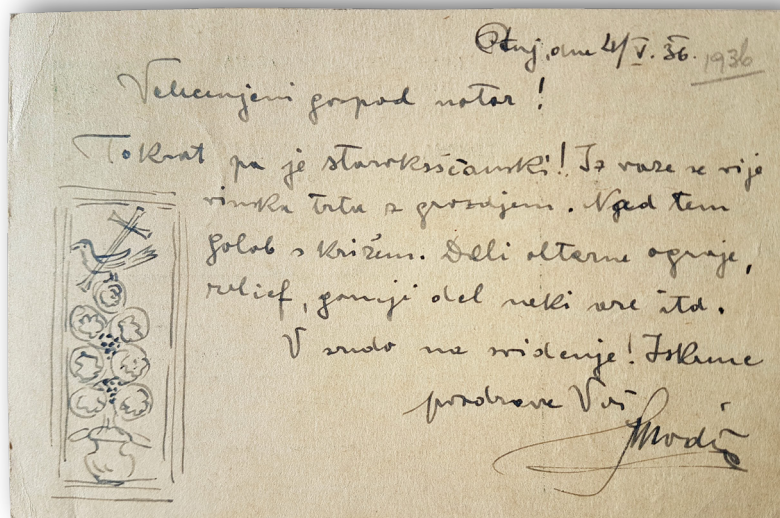 Ptuj, dne 4/V. 36.
1936
Velecenjeni gospod notar!
Tokrat pa je starokrščanski! Iz vaze se vije
vinska trta z grozdjem. Nad tem
golob s križem. Deli oltarne ograje,
relief, gornji del neki are itd.
V sredo na svidenje! Iskrene
pozdrave Vaš
Smodič